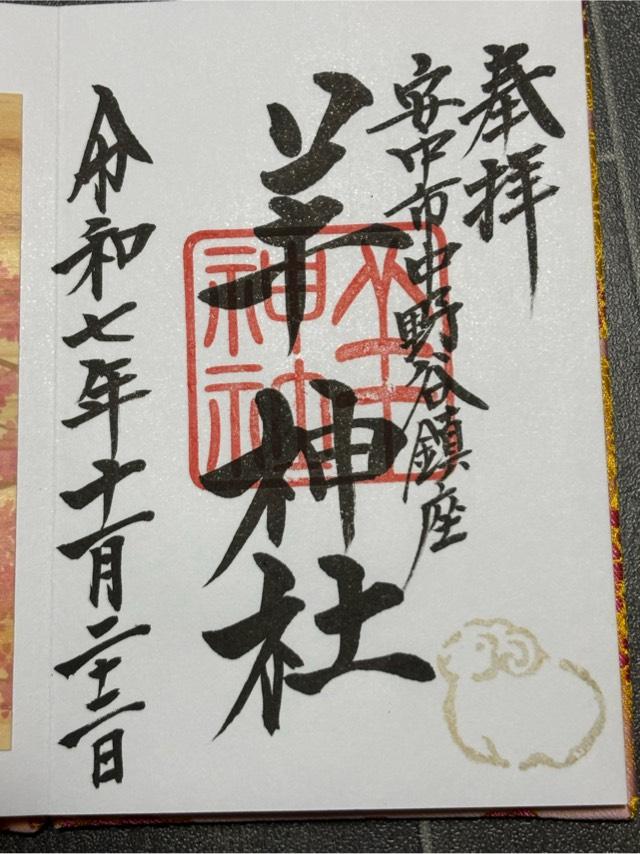 奉拝
安中市中野谷鎮座
羊神社
羊神社
令和七年十一月二十二日